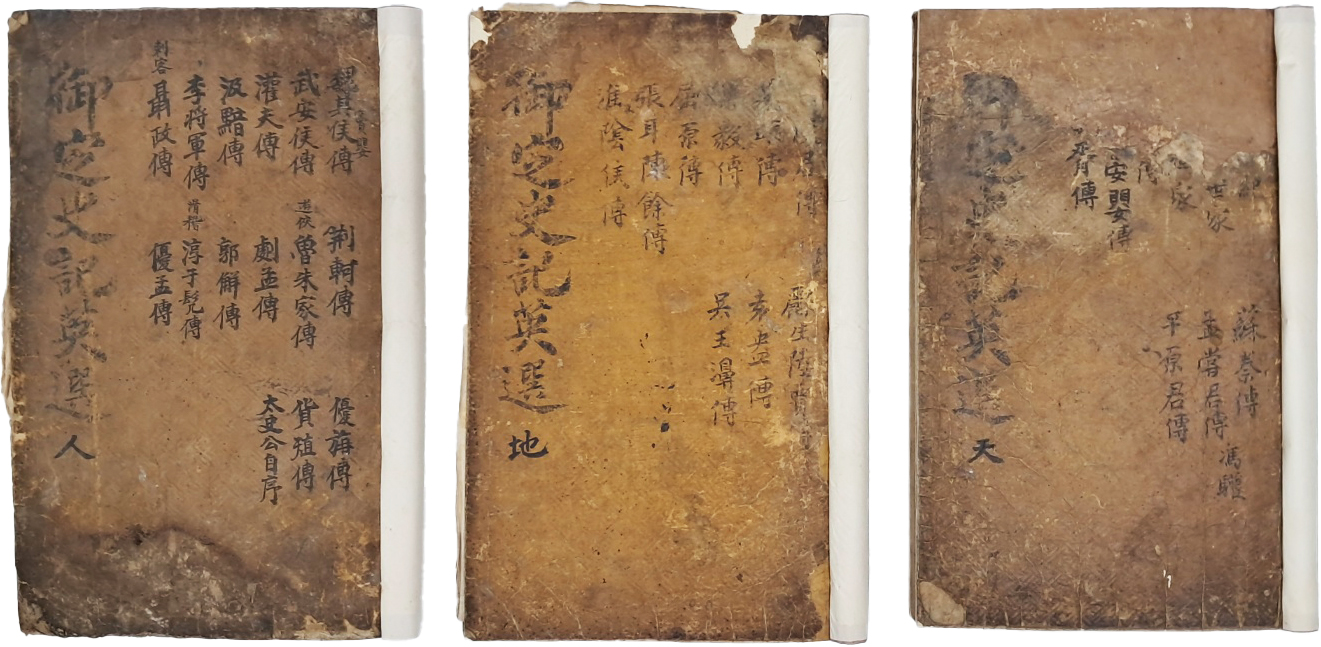 世家
世家
傳
晏嬰傳
齊傳
蘇秦傳
孟嘗君傳
馮驩
平原君傳
定史記英選
天
傳
傳
樂毅傳
屈原傳
張耳陳餘傳
淮陰侯傳
酈生陸賈傳
袁盎傳
吳王濞傳
御定史記英選
地
魏其侯傳
武安侯傳
灌夫傳
汲黯傳
李將軍傳
刺客
聶政傳
荆軻傳
遊俠
魯朱家傳
劇孟傳
郭解傳
滑稽
淳于髡傳
優孟傳
優旃傳
貨殖傳
太史公自序
御定史記英選
人